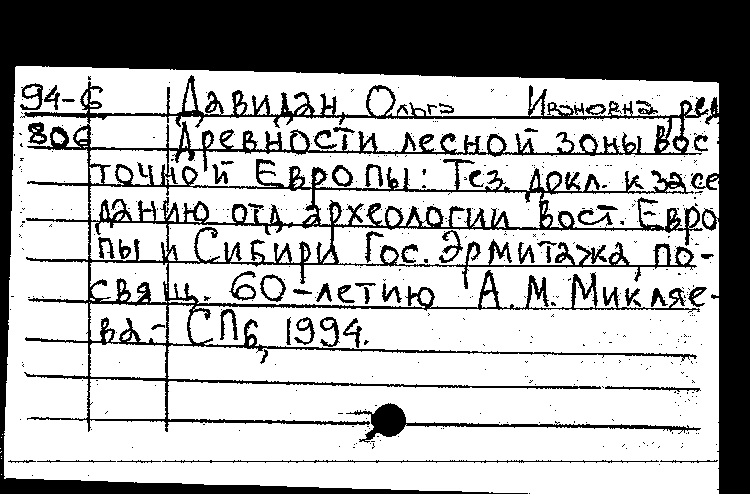 94-6 Давидан, Ольга Ивановна, ред
806 Древности лесной зоны Вос-
точной Европы: Тез. докл. к засе
данию отд. археологии Вост. Евро
пы и Сибири Гос. Эрмитажа, по-
свящ. 60-летию А. М. Микляе-
ва.- СПб, 1994.